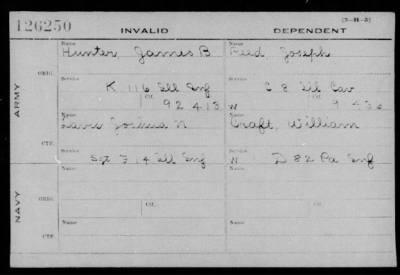 126250
(3-H-3)
INVALID DEPENDENT
Name Name
Hunter, James B Reed, Joseph
ORIG.
Service Service
K 116 Ill Inf C 8 Ill Cav
Ctf. Ctf.
92 413 W 9 436
ARMY
Name Name
Joshua N Craft, William
CTF.
Service Service
Sgt F 14 Ill Inf W D 82 Pa Inf
NAVY
Name Name
ORIG.
Service Ctf. Service Ctf.
Name Name
CTF.
Service Service